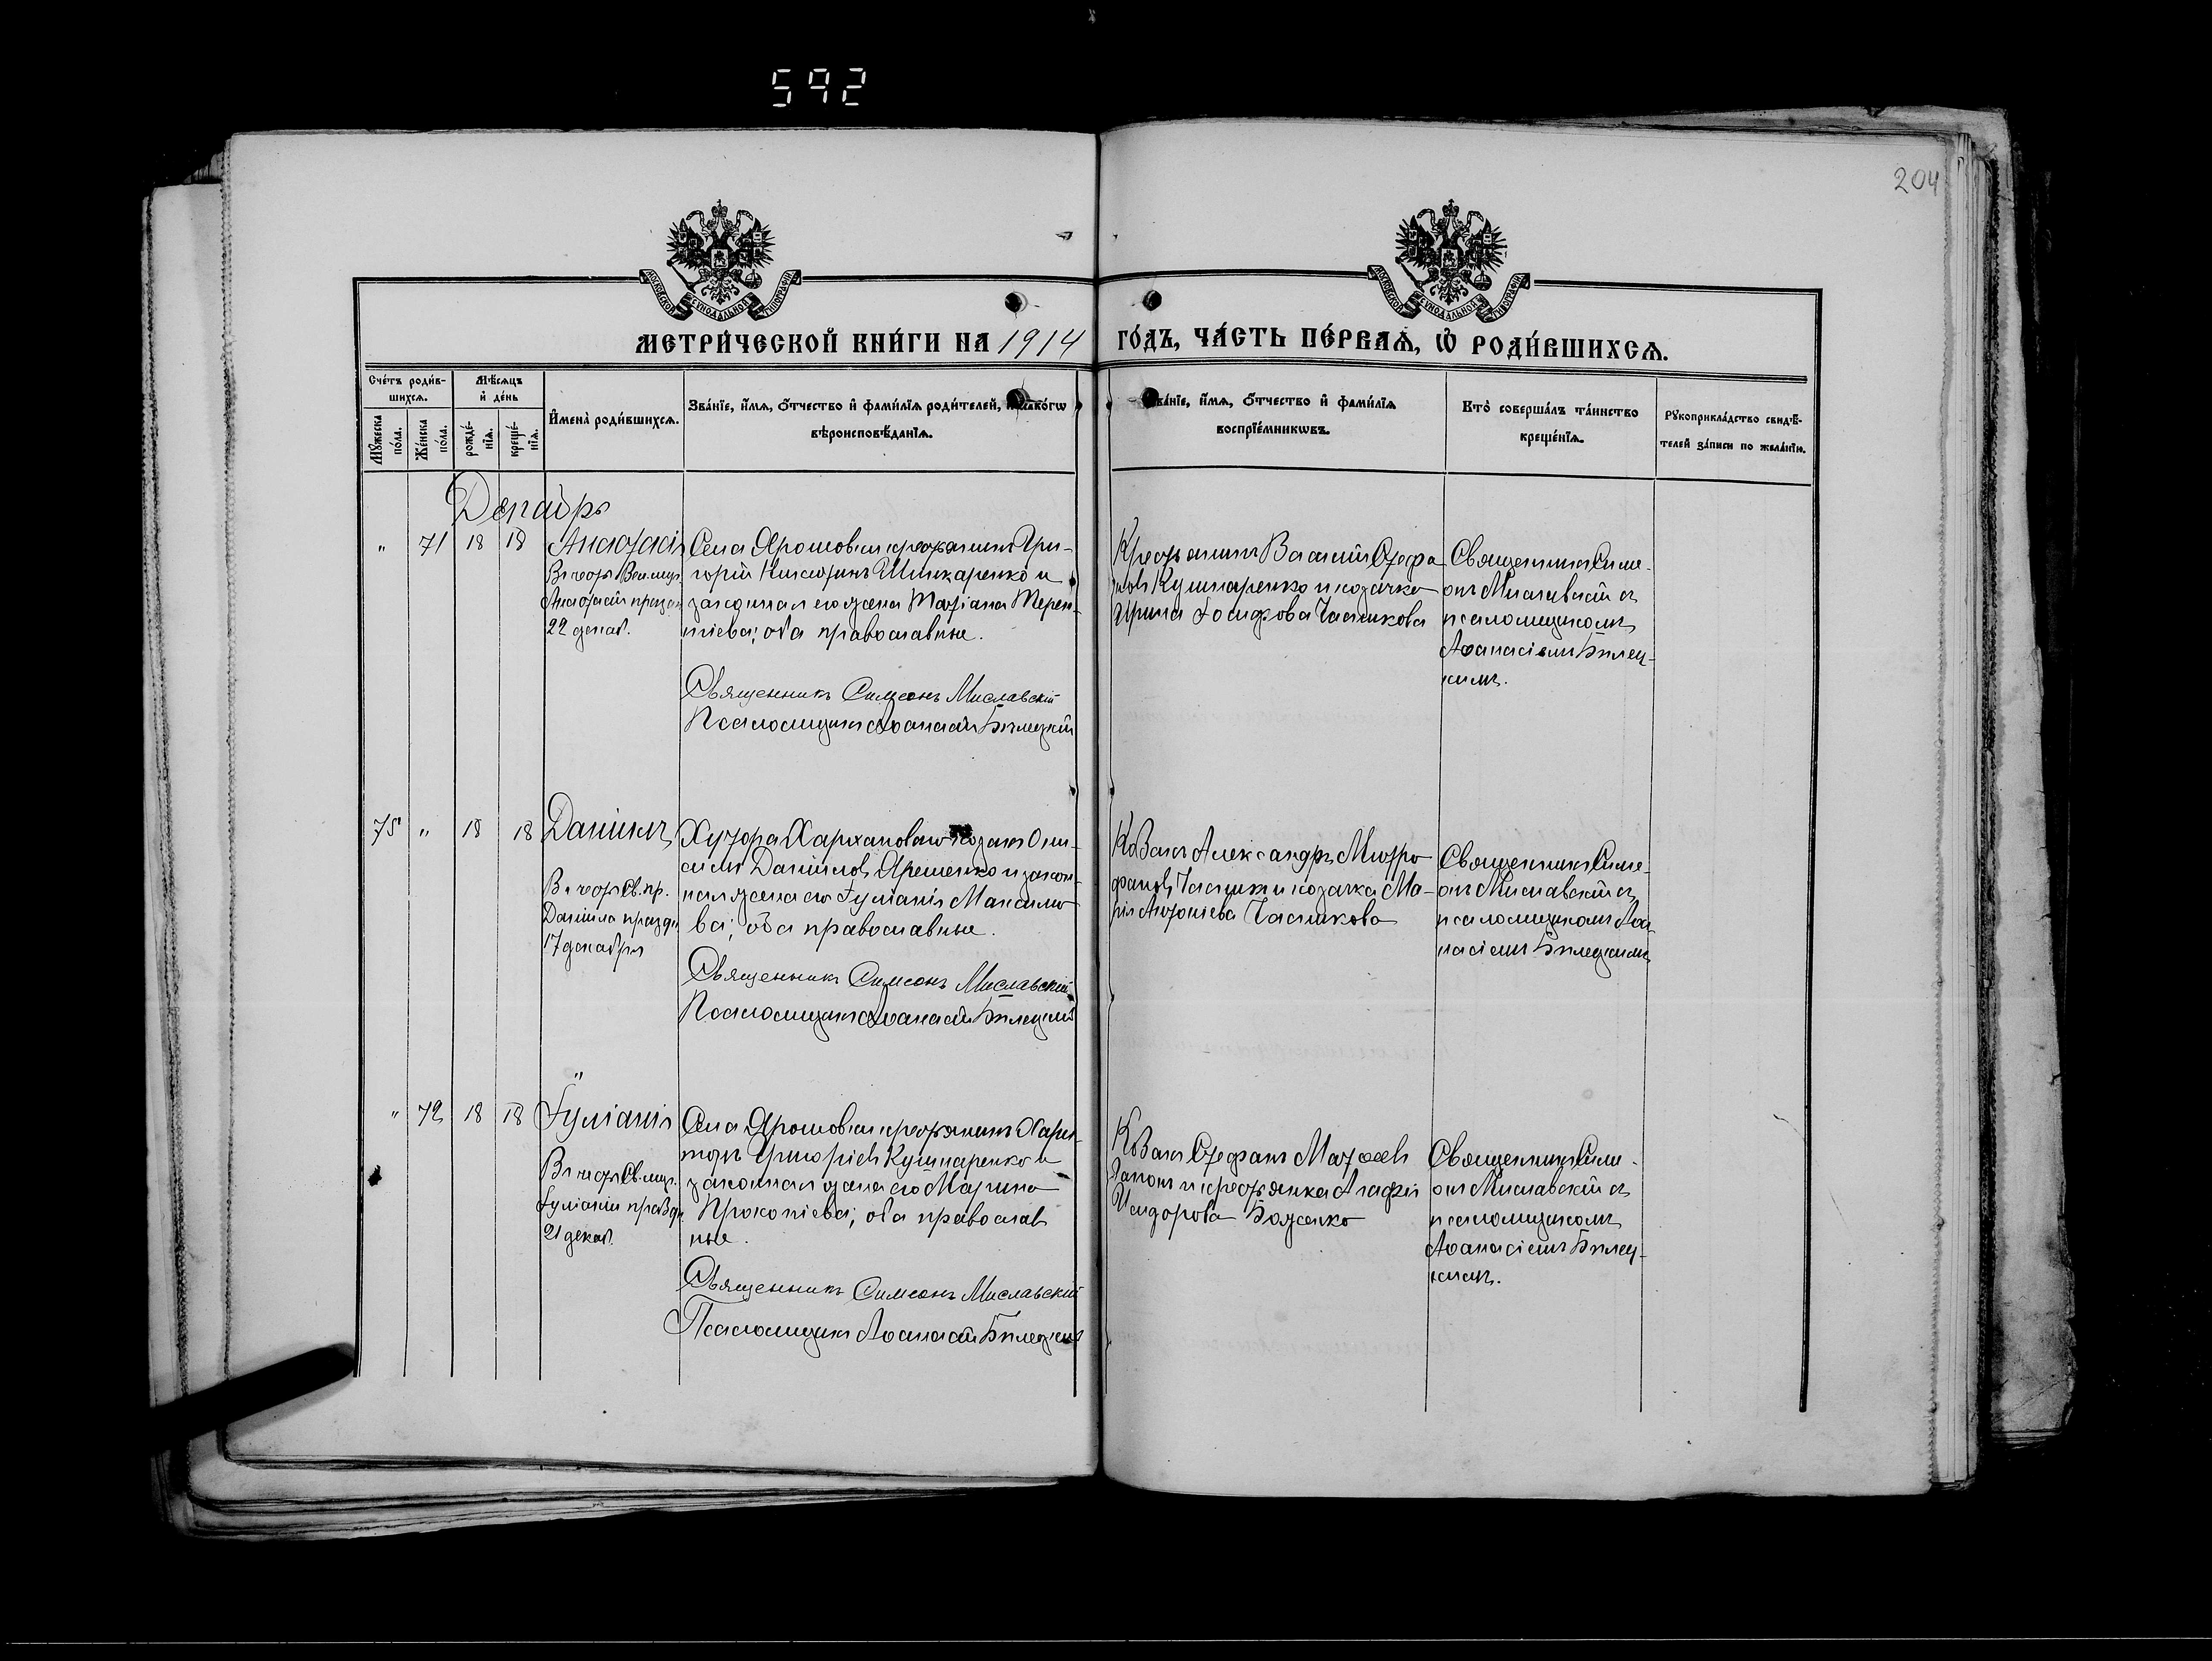 592
204
МОСКОВСКОЙ СѴНОДАЛЬНОЙ ТИПОГРАФІИ
МОСКОВСКОЙ СѴНОДАЛЬНОЙ ТИПОГРАФІИ
МЕТРИ́ЧЕСКОЙ КНИ́ГИ НА 1914 ГО́ДЪ, ЧА́СТЬ ПЕ́РВАѦ, Ѽ РОДИ́ВШИХСѦ.
Сче́тъ роди́в-
шихсѧ.
Мꙋ́жеска
по́ла.
Же́нска
по́ла.
Мѣ́сѧцъ
и҆ де́нь
рожде́-
нїѧ.
креще́-
нїѧ.
И҆мена̀ роди́вшихсѧ.
Зва́нїе, и҆́мѧ, ѻ҆́тчество и҆ фами́лїѧ роди́телей, и҆ како́гѡ
вѣроисповѣ́данїѧ.
Зва́нїе, и҆́мѧ, ѻ҆́тчество и҆ фами́лїѧ
воспрїе́мникѡвъ.
Кто̀ соверша́лъ та́инство
креще́нїѧ.
Рꙋкоприкла́дство свидѣ́-
телей за́писи по жела́нїю.
Декабрь
" 71 18 18 Анастасія
Въ честь Вел.муч.
Анастасіи праздн.
22 декаб.
Села Ярошовки крестьянинъ Гри-
горій Шинкаренко и
законная его жена Татіана Терен-
тіева; оба православные.
Священникъ Симеонъ Миславскій
Псаломщикъ Аѳанасій Билецкій
Крестьянинъ Василій Стефа-
новъ Кушнаренко и козачка
Ирина Іосифова Частикова
Священникъ Симе-
онъ Миславскій съ
псаломщикомъ
Аѳанасіемъ Билец-
кимъ.
75 " 18 18 Даніилъ
Въ честь Св. пр.
Даніила праздн.
17 декабря
Хутора козакъ Они-
симъ Даніиловъ Ярешенко и закон-
ная жена его Іуліанія Максимо-
ва; оба православные.
Священникъ Симеонъ Миславскій
Псаломщикъ Аѳанасій Билецкій
Козакъ Александръ Митро-
фановъ и козачка Ма-
рія Антоніева Частикова
Священникъ Симе-
онъ Миславскій съ
псаломщикомъ Аѳа-
насіемъ Билецкимъ
" 72 18 18 Іуліанія
Въ честь Св. муч.
Іуліаніи праздн.
21 декаб.
Села Ярошовки крестьянинъ Хари-
тонъ Григоріевъ Кушнаренко и
законная жена его Марина
Прокопіева; оба православ
ные.
Священникъ Симеонъ Миславскій
Псаломщикъ Аѳанасій Билецкій
Козакъ Стефанъ Матѳеевъ
и крестьянка Агафія
Исидорова Боженко
Священникъ Симе-
онъ Миславскій съ
псаломщикомъ
Аѳанасіемъ Билец-
кимъ.